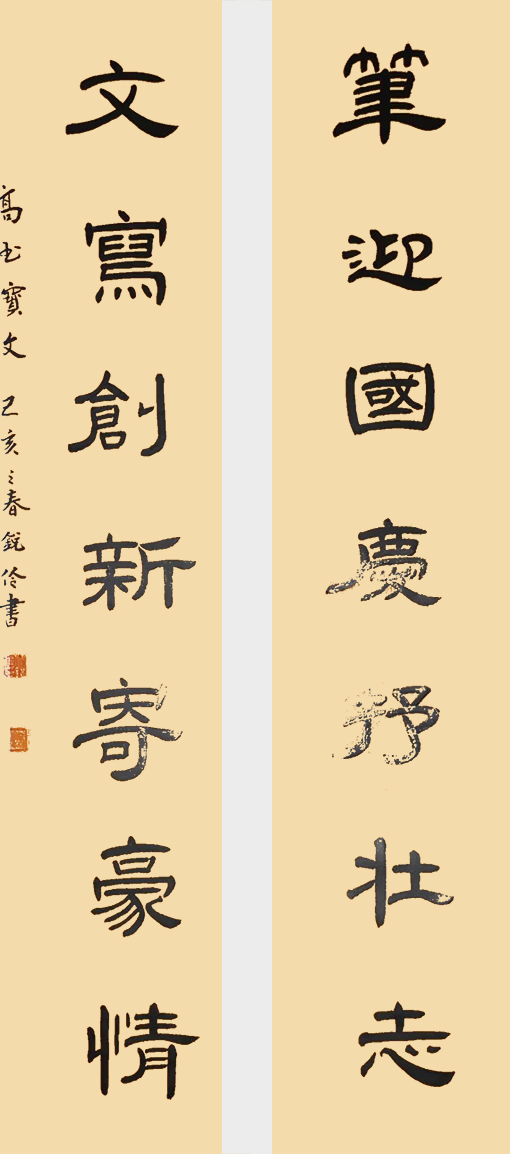 筆迎國慶抒壯志
文寫創新寄豪情
高玉寶文 己亥之春鋭伶書